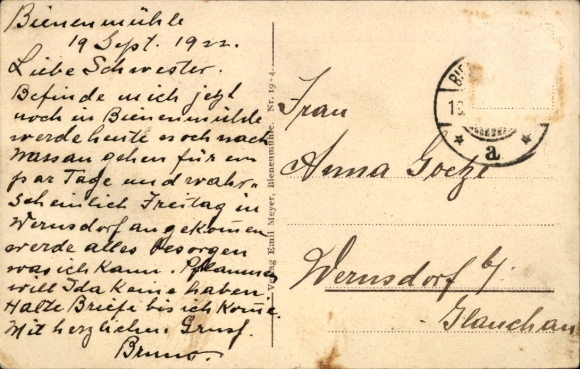 Bienenmühle
19 Sept. 1922.
Liebe Schwester.
Befinde mich jetzt
noch in Bienenmühle
werde heute noch nach
Nassau gehen für ein
paar Tage und wahr-
scheinlich Freitag in
Wernsdorf angekommen
werde alles besorgen
was ich kann. Pflaumen
will Ida keine haben.
Halte Briefe bis ich kome.
Mit herzlichen Gruß.
Bruno.
Verlag Emil Meyer, Bienenmühle. Nr. 19
Frau
Anna Goetze
Wernsdorf b/
Glauchau
BIE
* a *